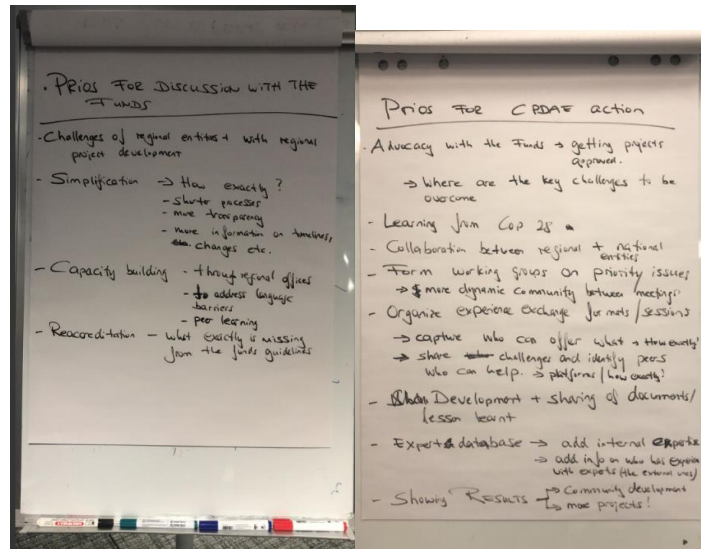 · PRIOS FOR DISCUSSION WITH THE
FUNDS
· Challenges of regional entites + with regional
project development
- Simplification → How exactly?
- shorter processes
- more transparency
- more information on timelines,
changes etc.
- Capacity building - through regional offices
- to address language
barriers
- peer learning
- Reaccreditation - what exactly is missing
from the funds guidelines
Prios FOR CPDAE action
· Advocacy with the Funds → getting projects
approved.
→ Where are the key challenges to be
overcome
- Learning from Cop 28
- Collaboration between regional + national
entities
- Form working groups on priority issues
→ more dynamic community between meetings
- Organize experience exchange formats/sessions
→ capture who can offer what → How exactly?
→ share challenges and identify peers
who can help. → platforms / how exactly?
- Development + sharing of documents/
lesson learnt
- Expert database → add internal experts
→ add info on who has experience
with experts (the external ones)
- Showing RESULTS → Community development
→ more projects!